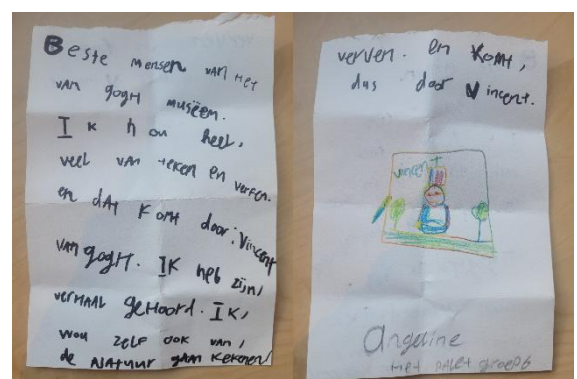 Beste mensen van Het
van gogh museen.
Ik hou heel,
veel van teken en verfen.
en dat komt door: Vincent
van gogh. Ik heb zijn,
verhaal geHoord. Ik,
wou zelf ook van,
de Natuur gaan kekenen,
verven. en Komt,
dus door Vincent.
vincent
Angeline
Het palet groep 6